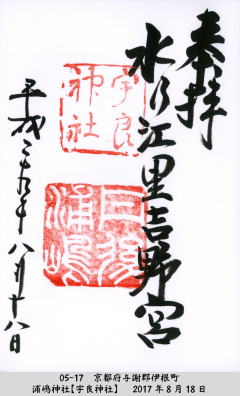 奉拝
水乃江里吉野宮
宇良神社
日後浦嶋
平成二十九年八月十八日
05-17 京都府与謝郡伊根町
浦嶋神社【宇良神社】 2017年8月18日